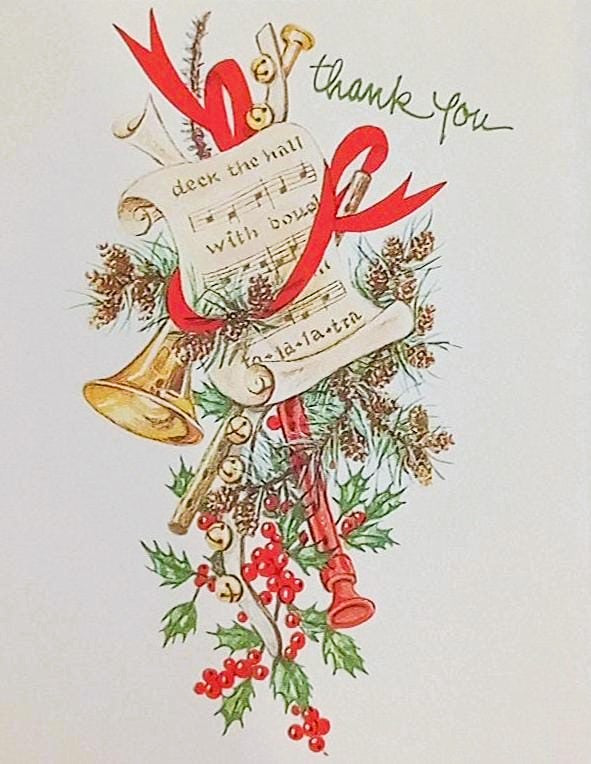 thank you
deck the hall
with boug
la•la•la•tra